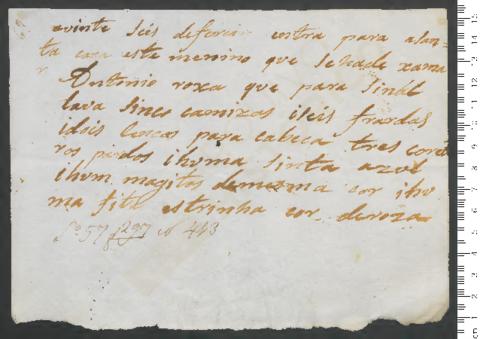 evinte seis defereiro entra para asan
ta caza este menino que sehade xama
r Antonio roxa que para sinál
lava sinco camizas iseis fraodas
idois lencos para cabeca tres coei
ros pardos ihuma sinta azul
ihum magitos demesma cor ihu
ma fita estrinha cor deroza
fo 57 f 297 N 443